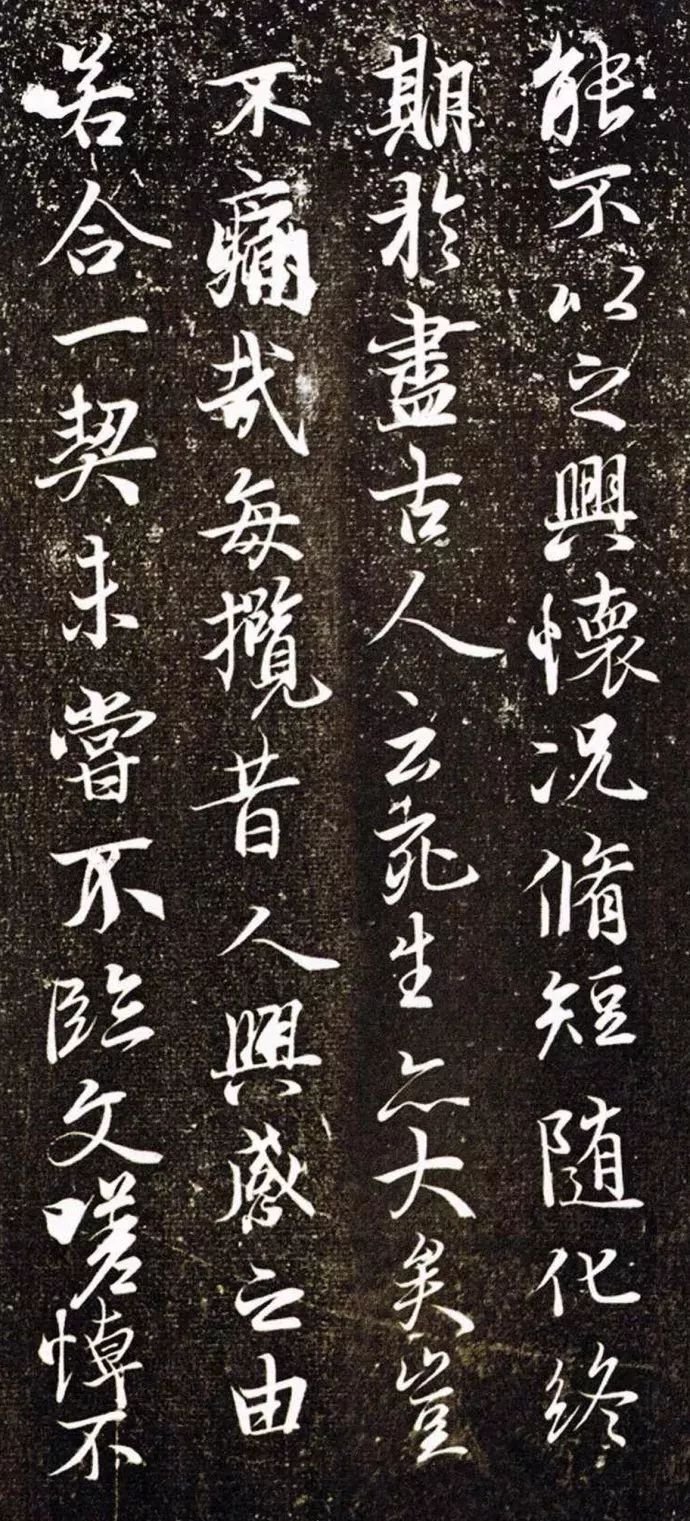 能不以之興懷況脩短隨化終
期於盡古人云死生亦大矣豈
不痛哉每攬昔人興感之由
若合一契未嘗不臨文嗟悼不